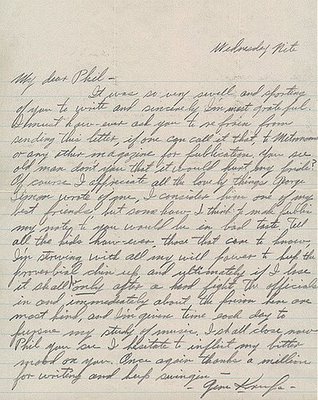 Wednesday Nite
My dear Phil -
It was so very swell and sporting
of you to write and sincerely I'm most grateful.
I must how-ever ask you to refrain from
sending this letter, if one can call it that, to Metronome
or any other magazine for publication. You see
old man don't you that it would hurt my pride?
Of course I appreciate all the lovely things George
Simon wrote of me, I consider him one of my
best friends, but some how, I think to make public
my note to you would be in bad taste. Tell
all the kids how-ever, those that care to know,
I'm striving with all my will power to keep the
proverbial chin up, and ultimately if I lose
it shall only after a hard fight. The officials
in and immediately about, the prison here are
most kind, and I'm given time each day to
pursue my study of music. I shall close now
Phil you see I hesitate to inflict my bitter
mood on you. Once again thanks a million
for writing and keep swingin' -
- Gene Krupa -